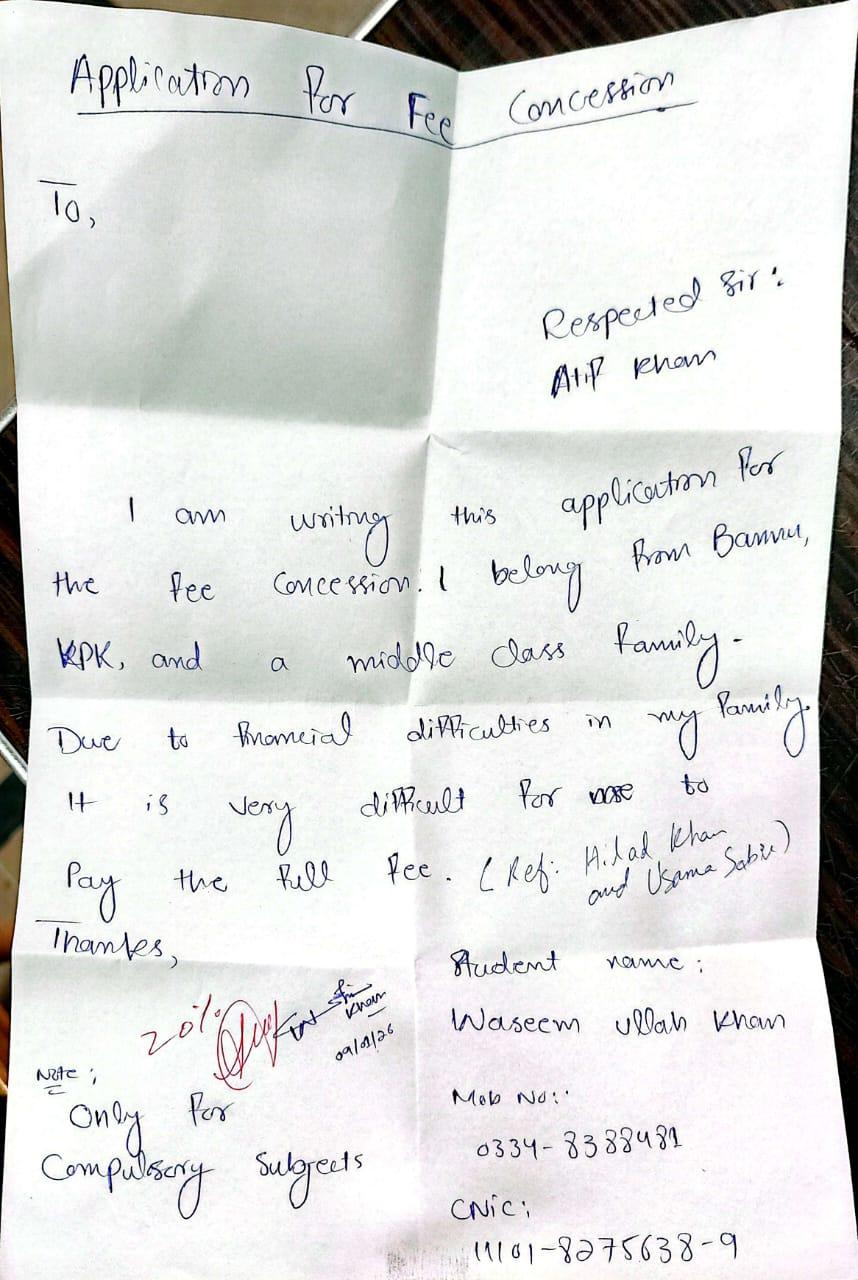 Application For Fee Concession
To,
Respected Sir:
Atif Khan
I am writing this application for
the fee concession. I belong from Bannu,
KPK, and a middle class family.
Due to financial difficulties in my family.
It is very difficult for me to
Pay the full fee. (Ref: Hilad Khan
and Usama Sabir)
Thankes,
20%
Khan
09/01/26
Student name:
Waseem ullah Khan
Note:
Only for
Compulsory Subjects
Mob No:
0334-8388481
CNIC:
11101-8275638-9